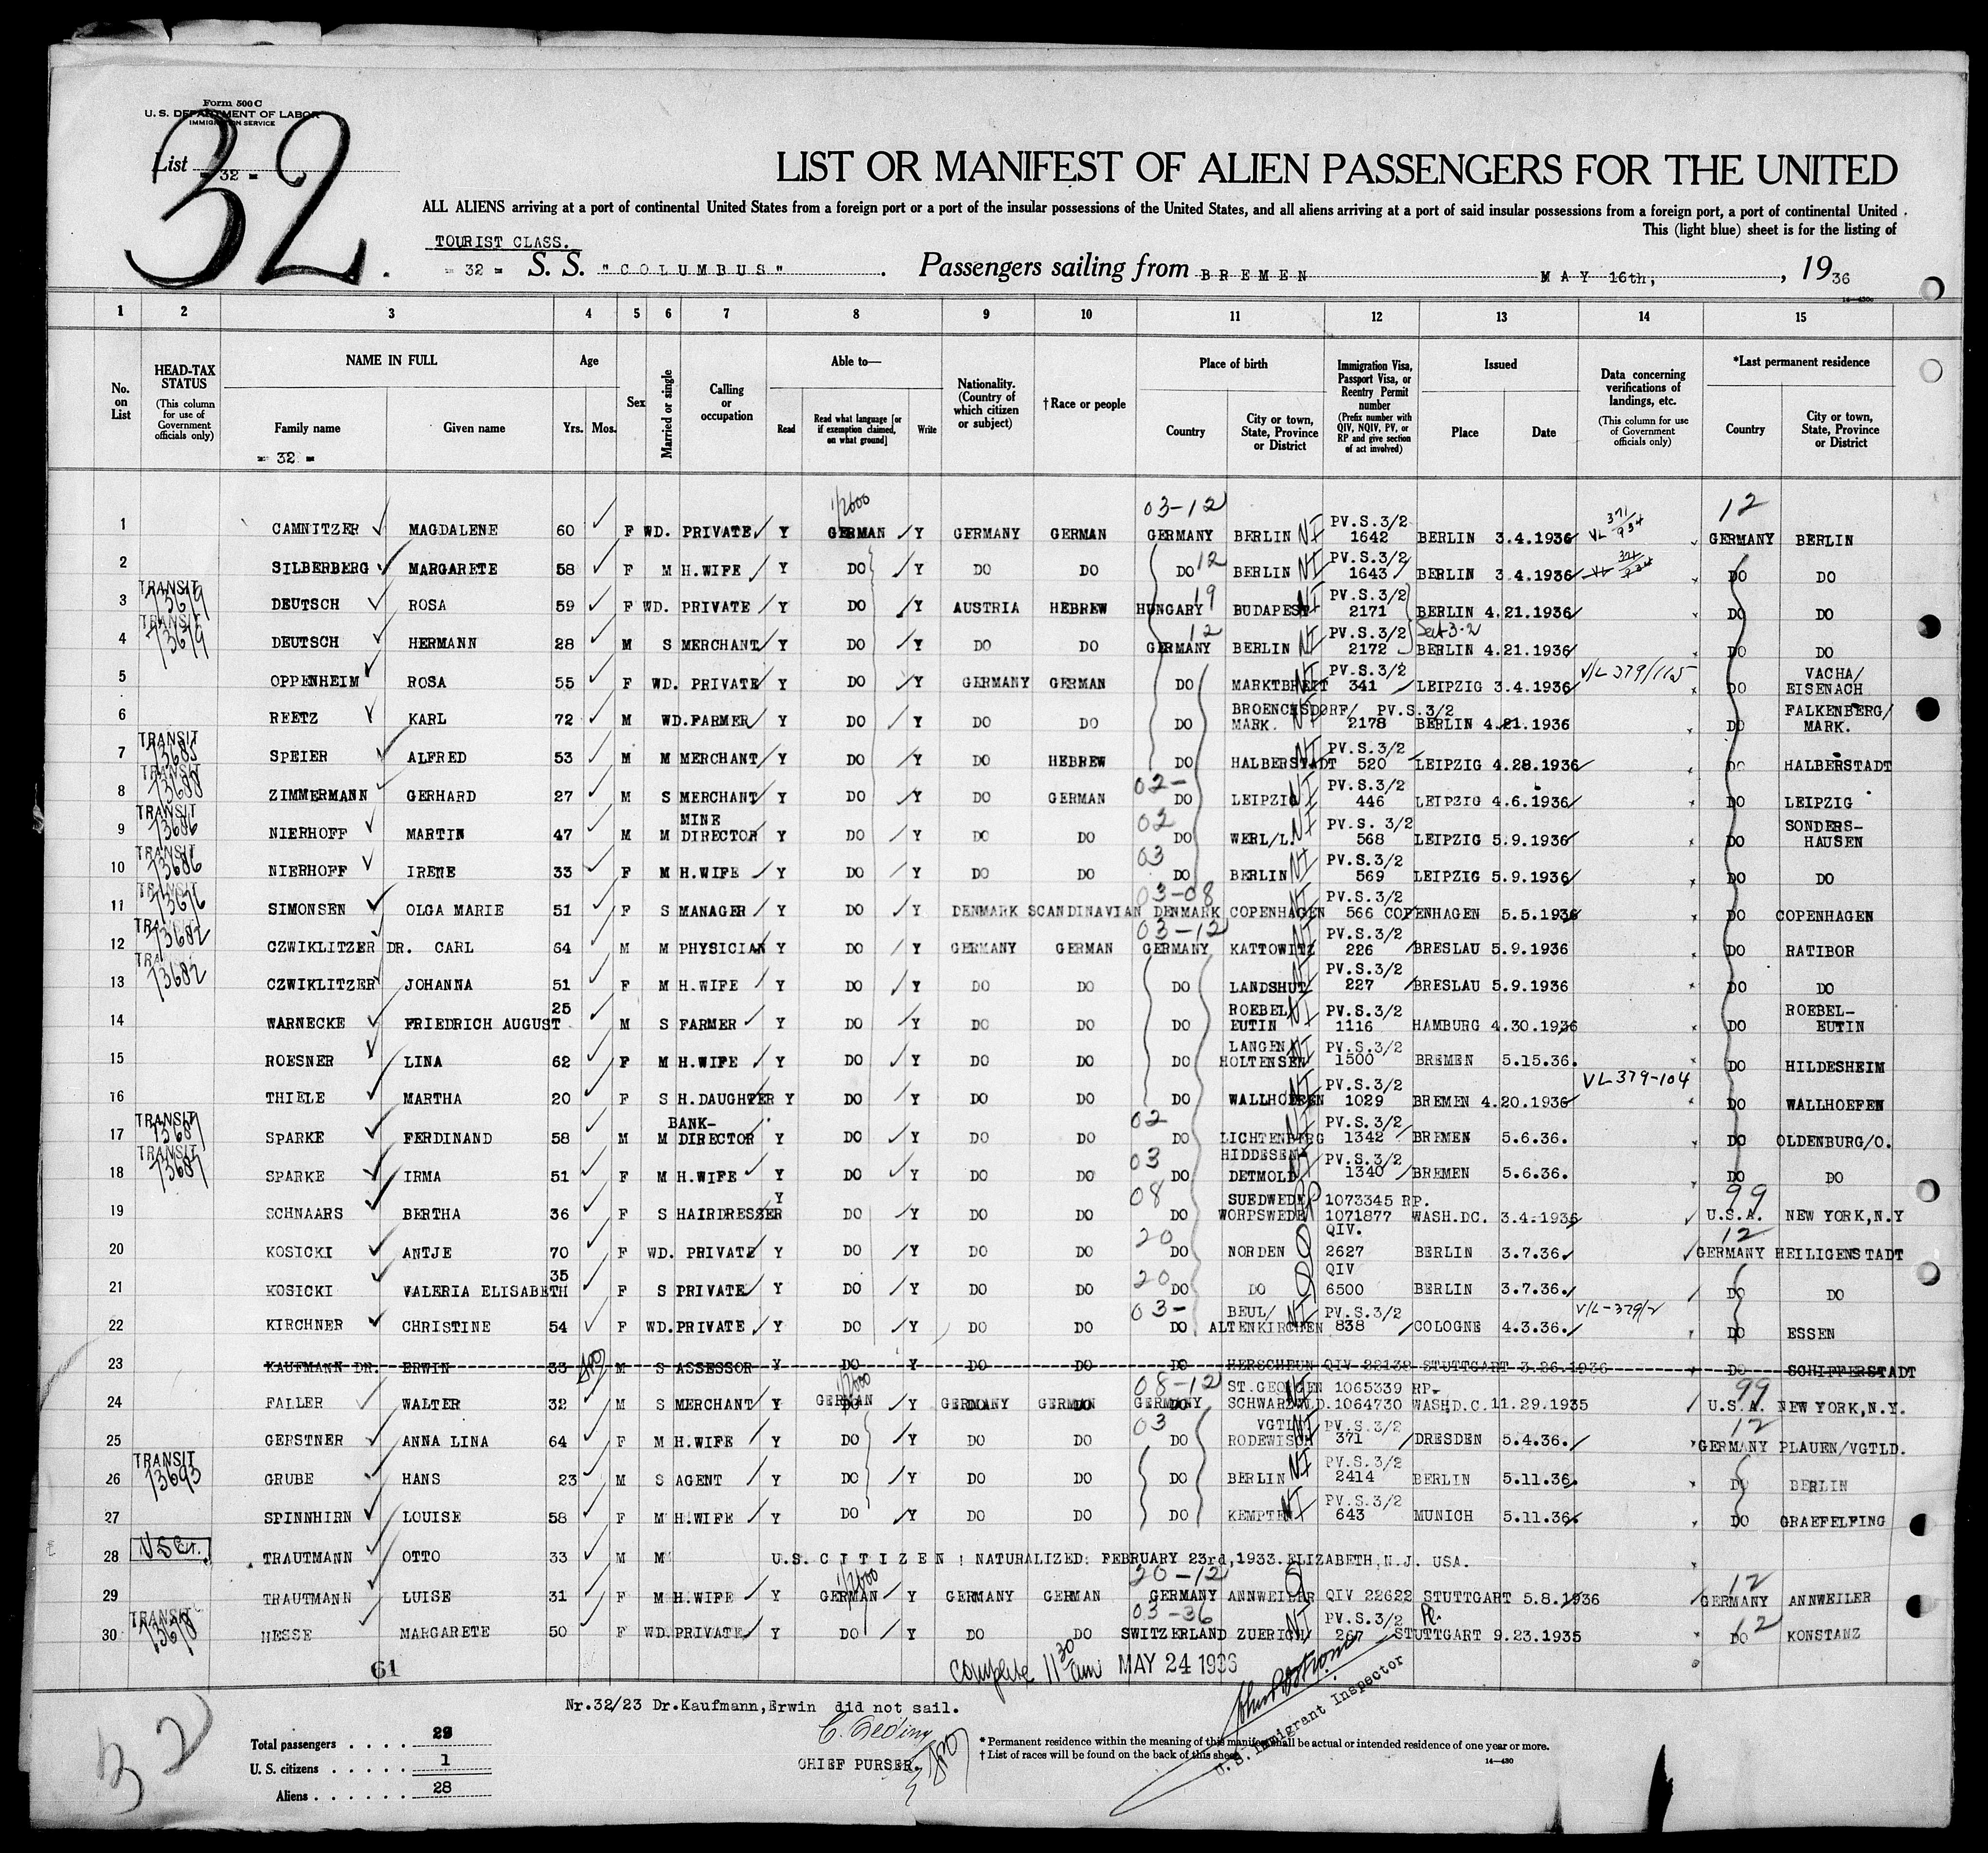 Form 500 C
U. S. DEPARTMENT OF LABOR
IMMIGRATION SERVICE
List - 32 -
32.
LIST OR MANIFEST OF ALIEN PASSENGERS FOR THE UNITED
ALL ALIENS arriving at a port of continental United States from a foreign port or a port of the insular possessions of the United States, and all aliens arriving at a port of said insular possessions from a foreign port, a port of continental United
This (light blue) sheet is for the listing of
TOURIST CLASS.
- 32 - S. S. "COLUMBUS" Passengers sailing from BREMEN MAY 16th, , 1936
14—430c
1 2 3 4 5 6 7 8 9 10 11 12 13 14 15
No. on List
HEAD-TAX STATUS (This column for use of Government officials only)
NAME IN FULL Family name Given name
- 32 -
Age Yrs. Mos.
Sex
Married or single
Calling or occupation
Able to— Read Read what language [or if exemption claimed, on what ground] Write
Nationality. (Country of which citizen or subject)
† Race or people
Place of birth Country City or town, State, Province or District
Immigration Visa, Passport Visa, or Reentry Permit number (Prefix number with QIV, NQIV, PV, or RP and give section of act involved)
Issued Place Date
Data concerning verifications of landings, etc. (This column for use of Government officials only)
*Last permanent residence Country City or town, State, Province or District
1 CAMNITZER MAGDALENE 60 F WD. PRIVATE Y GERMAN Y GERMANY GERMAN 03-12 GERMANY BERLIN NI PV.S.3/2 1642 BERLIN 3.4.1936 VL 371/934 12 GERMANY BERLIN
2 SILBERBERG MARGARETE 58 F M H.WIFE Y DO Y DO DO DO 12 BERLIN NI PV.S.3/2 1643 BERLIN 3.4.1936 DO DO
3 TRANSIT 13679 DEUTSCH ROSA 59 F WD. PRIVATE Y DO Y AUSTRIA HEBREW HUNGARY 19 BUDAPEST NI PV.S.3/2 2171 BERLIN 4.21.1936 DO DO
4 TRANSIT 13679 DEUTSCH HERMANN 28 M S MERCHANT Y DO Y DO DO 12 GERMANY BERLIN NI PV.S.3/2 2172 Sect 3-2 BERLIN 4.21.1936 DO DO
5 OPPENHEIM ROSA 55 F WD. PRIVATE Y DO Y GERMANY GERMAN DO MARKTBREIT NI PV.S.3/2 341 LEIPZIG 3.4.1936 V/L 379/115 DO VACHA/ EISENACH
6 REETZ KARL 72 M WD. FARMER Y DO Y DO DO DO MARK. NI PV.S.3/2 2178 BERLIN 4.21.1936 DO FALKENBERG/ MARK.
7 TRANSIT 13685 SPEIER ALFRED 53 M M MERCHANT Y DO Y DO HEBREW DO HALBERSTADT NI PV.S.3/2 520 LEIPZIG 4.28.1936 DO HALBERSTADT
8 TRANSIT 13688 ZIMMERMANN GERHARD 27 M S MERCHANT Y DO Y DO GERMAN 02- DO LEIPZIG NI PV.S.3/2 446 LEIPZIG 4.6.1936 DO LEIPZIG
9 TRANSIT 13686 NIERHOFF MARTIN 47 M M MINE DIRECTOR Y DO Y DO DO 02 DO WERL/L. NI PV.S. 3/2 568 LEIPZIG 5.9.1936 DO SONDERS- HAUSEN
10 TRANSIT 13686 NIERHOFF IRENE 33 F M H.WIFE Y DO Y DO DO 03 DO BERLIN NI PV.S.3/2 569 LEIPZIG 5.9.1936 DO DO
11 TRANSIT 13676 SIMONSEN OLGA MARIE 51 F S MANAGER Y DO Y DENMARK SCANDINAVIAN 03-08 DENMARK COPENHAGEN NI PV.S.3/2 566 COPENHAGEN 5.5.1936 DO COPENHAGEN
12 TRANSIT 13682 CZWIKLITZER DR. CARL 64 M M PHYSICIAN Y DO Y GERMANY GERMAN 03-12 GERMANY KATTOWITZ NI PV.S.3/2 226 BRESLAU 5.9.1936 DO RATIBOR
13 TRANSIT 13682 CZWIKLITZER JOHANNA 51 F M H.WIFE Y DO Y DO DO DO LANDSHUT NI PV.S.3/2 227 BRESLAU 5.9.1936 DO DO
14 WARNECKE FRIEDRICH AUGUST 25 M S FARMER Y DO Y DO DO DO ROEBEL/ EUTIN NI PV.S.3/2 1116 HAMBURG 4.30.1936 DO ROEBEL- EUTIN
15 ROESNER LINA 62 F M H.WIFE Y DO Y DO DO DO LANGEN HOLTENSEN NI PV.S.3/2 1500 BREMEN 5.15.36. DO HILDESHEIM
16 THIELE MARTHA 20 F S H.DAUGHTER Y DO Y DO DO DO WALLHOEFEN NI PV.S.3/2 1029 BREMEN 4.20.1936 VL 379-104 DO WALLHOEFEN
17 TRANSIT 13687 SPARKE FERDINAND 58 M M BANK- DIRECTOR Y DO Y DO DO 02 DO LICHTENBERG NI PV.S.3/2 1342 BREMEN 5.6.36. DO OLDENBURG/O.
18 TRANSIT 13687 SPARKE IRMA 51 F M H.WIFE Y DO Y DO DO 03 DO HIDDESEN DETMOLD NI PV.S.3/2 1340 BREMEN 5.6.36. DO DO
19 SCHNAARS BERTHA 36 F S HAIRDRESSER Y DO Y DO DO 08 DO SUEDWEDE WORPSWEDE RP 1073345 RP. 1071877 WASH.DC. 3.4.1936 99 U.S.A. NEW YORK,N.Y
20 KOSICKI ANTJE 70 F WD. PRIVATE Y DO Y DO DO 20 DO NORDEN Q QIV. 2627 BERLIN 3.7.36. 12 GERMANY HEILIGENSTADT
21 KOSICKI VALERIA ELISABETH 35 F S PRIVATE Y DO Y DO DO 20 DO DO Q QIV 6500 BERLIN 3.7.36. DO DO
22 KIRCHNER CHRISTINE 54 F WD. PRIVATE Y DO Y DO DO 03- DO BEUL/ ALTENKIRCHEN NI PV.S.3/2 838 COLOGNE 4.3.36. V/L-379/2 DO ESSEN
23 KAUFMANN DR. ERWIN 33 M S ASSESSOR Y DO Y DO DO DO QIV 22138 STUTTGART 3.26.1936 DO SCHIFFERSTADT
24 FALLER WALTER 32 M S MERCHANT Y GERMAN Y GERMANY GERMAN 08-12 GERMANY ST.GEORGEN SCHWARZW.D. NI 1065339 RP. 1064730 WASH.D.C. 11.29.1935 99 U.S.A. NEW YORK,N.Y.
25 GERSTNER ANNA LINA 64 F M H.WIFE Y DO Y DO DO 03 DO VGTL. RODEWISCH NI PV.S.3/2 371 DRESDEN 5.4.36. 12 GERMANY PLAUEN/VGTLD.
26 TRANSIT 13693 GRUBE HANS 23 M S AGENT Y DO Y DO DO DO BERLIN NI PV.S.3/2 2414 BERLIN 5.11.36. DO BERLIN
27 SPINNHIRN LOUISE 58 F M H.WIFE Y DO Y DO DO DO KEMPTEN NI PV.S.3/2 643 MUNICH 5.11.36. DO GRAEFELFING
28 US Cit. TRAUTMANN OTTO 33 M M U.S. CITIZEN ! NATURALIZED: FEBRUARY 23rd,1933. ELIZABETH,N.J. USA.
29 TRAUTMANN LUISE 31 F M H.WIFE Y GERMAN Y GERMANY GERMAN 20-12 GERMANY ANNWEILER Q QIV 22622 STUTTGART 5.8.1936 12 GERMANY ANNWEILER
30 TRANSIT 13678 HESSE MARGARETE 50 F WD. PRIVATE Y DO Y DO DO 03-36 SWITZERLAND ZUERICH NI PV.S.3/2 267 STUTTGART 9.23.1935 12 DO KONSTANZ
61
complete 11 30 am MAY 24 1936
Nr.32/23 Dr.Kaufmann,Erwin did not sail.
U.S. Immigrant Inspector
CHIEF PURSER.
32
Total passengers . . . . 29
U. S. citizens . . . . . 1
Aliens . . . . . . 28
* Permanent residence within the meaning of this manifest shall be actual or intended residence of one year or more.
† List of races will be found on the back of this sheet.
14—430